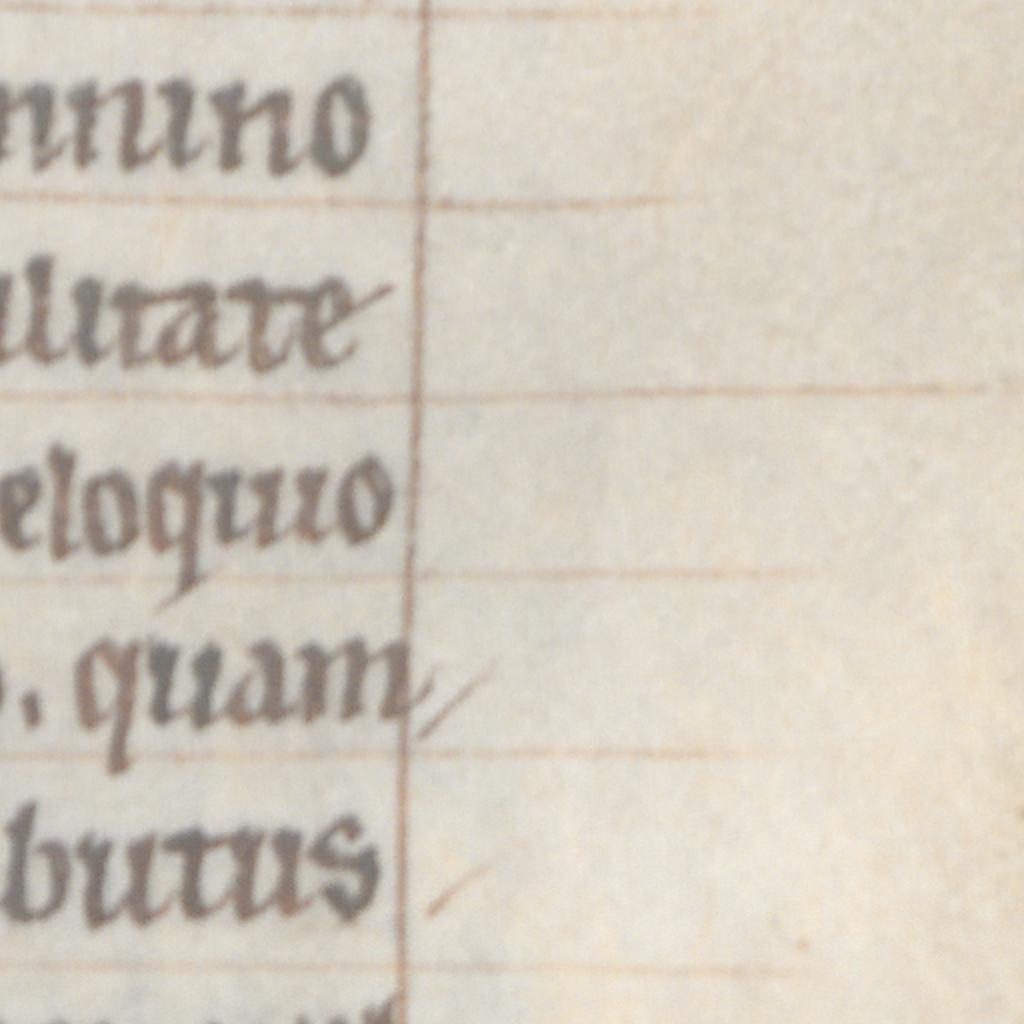 mnino
ilitate
eloquio
. quam
butus